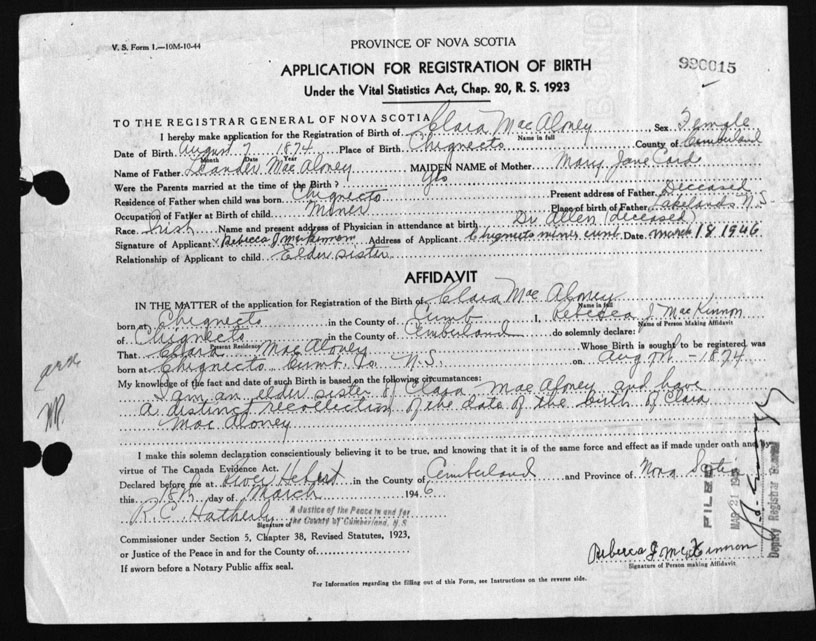 V. S. Form 1.—10M-10-44
PROVINCE OF NOVA SCOTIA
990015
APPLICATION FOR REGISTRATION OF BIRTH
Under the Vital Statistics Act, Chap. 20, R. S. 1923
TO THE REGISTRAR GENERAL OF NOVA SCOTIA
I hereby make application for the Registration of Birth of Clara Mac Aloney Sex Female
Name in full
Date of Birth August 7 1874 Place of Birth Chignecto County of Cumberland
Month Date Year
Name of Father Leander Mac Aloney MAIDEN NAME of Mother Mary Jane Card
Were the Parents married at the time of the Birth? Yes
Residence of Father when child was born Chignecto Present address of Father Deceased
Occupation of Father at Birth of child Miner Place of birth of Father Lakelands N.S
Race Irish Name and present address of Physician in attendance at birth Dr Allen (deceased)
Signature of Applicant x Rebecca J MacKinnon Address of Applicant Chignecto mines cumb Date March 18 1946
Relationship of Applicant to child Elder sister
AFFIDAVIT
IN THE MATTER of the application for Registration of the Birth of Clara Mac Aloney
Name in full
born at Chignecto in the County of Cumb I, Rebecca J. MacKinnon
Name of Person Making Affidavit
of Chignecto in the County of Cumberland do solemnly declare:
Present Residence
That Clara MacAloney Whose Birth is sought to be registered, was
born at Chignecto Cumb. Co N.S. on Aug 7th - 1874
My knowledge of the fact and date of such Birth is based on the following circumstances:
I am an elder sister of Clara MacAloney and have
a distinct recollection of the date of the birth of Clara
Mac Aloney
I make this solemn declaration conscientiously believing it to be true, and knowing that it is of the same force and effect as if made under oath and by
virtue of The Canada Evidence Act.
Declared before me at River Hebert in the County of Cumberland and Province of Nova Scotia
this 18th day of March 1946
R.C. Hatherly
A Justice of the Peace in and for
the County of Cumberland, N.S
Signature of
Commissioner under Section 5, Chapter 38, Revised Statutes, 1923,
or Justice of the Peace in and for the County of
If sworn before a Notary Public affix seal.
Rebecca J MacKinnon
Signature of Person making Affidavit
For Information regarding the filling out of this Form, see Instructions on the reverse side.
FILED
MAR 21 194
Deputy Registrar General